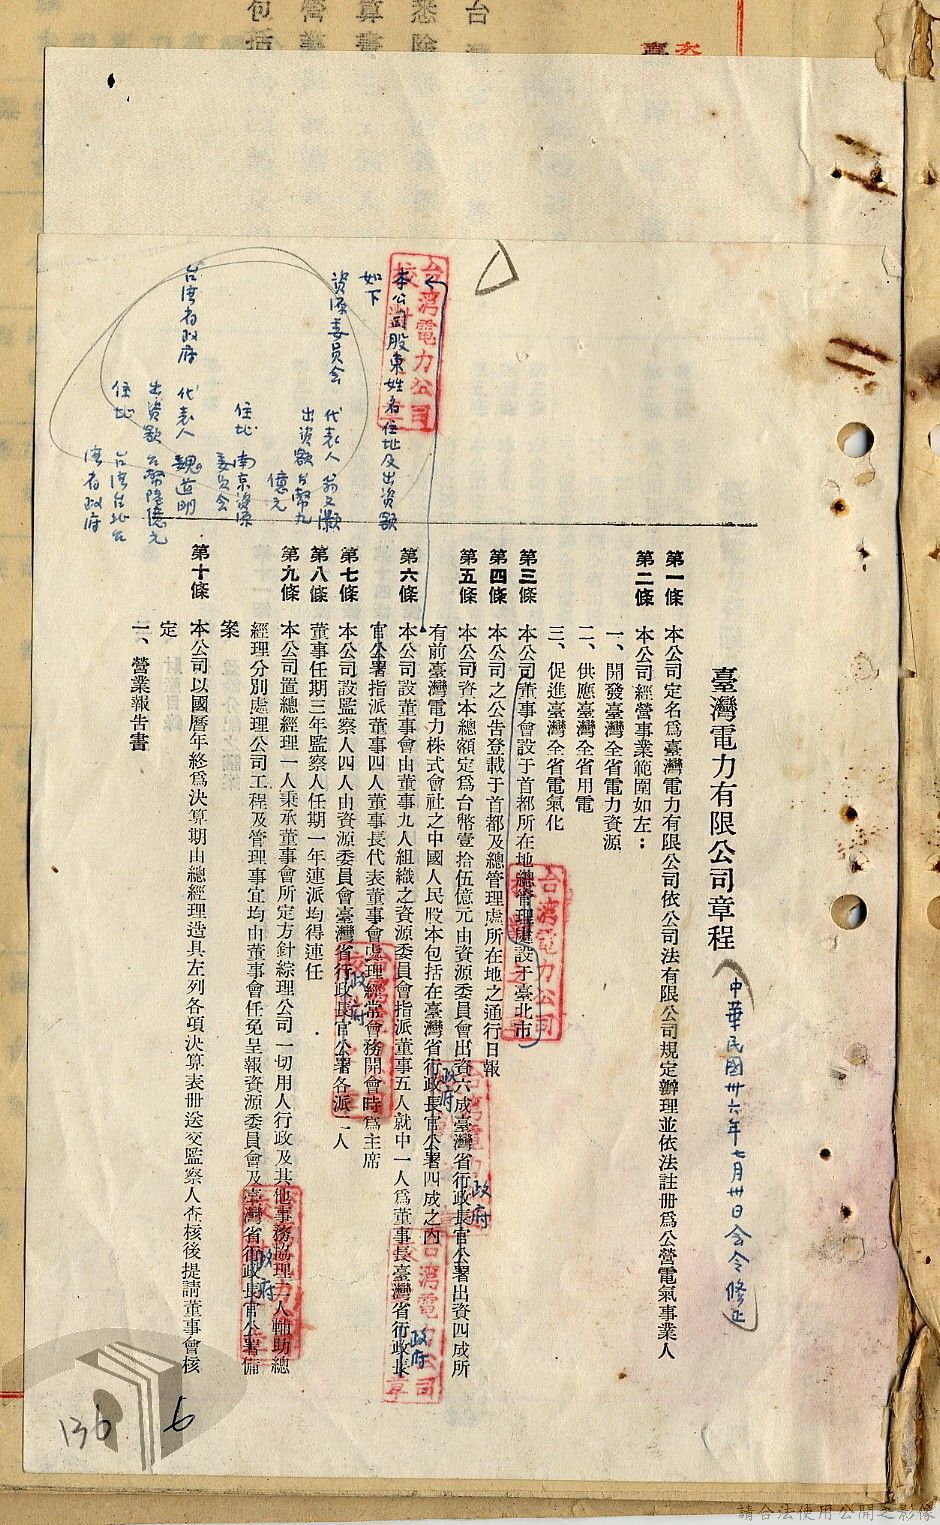 臺灣電力有限公司章程
中華民國卅六年七月卅日會令修正
第一條 本公司定名爲臺灣電力有限公司依公司法有限公司規定辦理並依法註册爲公營電氣事業人
第二條 本公司經營事業範圍如左：
一、開發臺灣全省電力資源
二、供應臺灣全省用電
三、促進臺灣全省電氣化
第三條 本公司董事會設于首都所在地總管理處設于臺北市
第四條 本公司之公告登載于首都及總管理處所在地之通行日報
第五條 本公司資本總額定爲台幣壹拾伍億元由資源委員會出資六成臺灣省行政長官公署出資四成所
政府
有前臺灣電力株式會社之中國人民股本包括在臺灣省行政長官公署四成之內
政府
第六條 本公司設董事會由董事九人組織之資源委員會指派董事五人就中一人爲董事長臺灣省行政長
政府
官公署指派董事四人董事長代表董事會處理經常會務開會時爲主席
第七條 本公司設監察人四人由資源委員會臺灣省行政長官公署各派二人
政府
第八條 董事任期三年監察人任期一年連派均得連任
第九條 本公司置總經理一人秉承董事會所定方針綜理公司一切用人行政及其他事務協理二人輔助總
經理分別處理公司工程及管理事宜均由董事會任免呈報資源委員會及臺灣省行政長官公署備
政府
案
第十條 本公司以國曆年終爲決算期由總經理造具左列各項決算表册送交監察人查核後提請董事會核
定
一、營業報告書
本公司股東姓名住址及出資額
如下
資源委員會 代表人 翁文灝
出資額 台幣九
億元
住址 南京資源
委員會
台灣省政府 代表人 魏道明
出資額 台幣陸億元
住址 台灣台北台
灣省政府
台灣電力公司
校對之章
136
6
請合法使用公開之影像